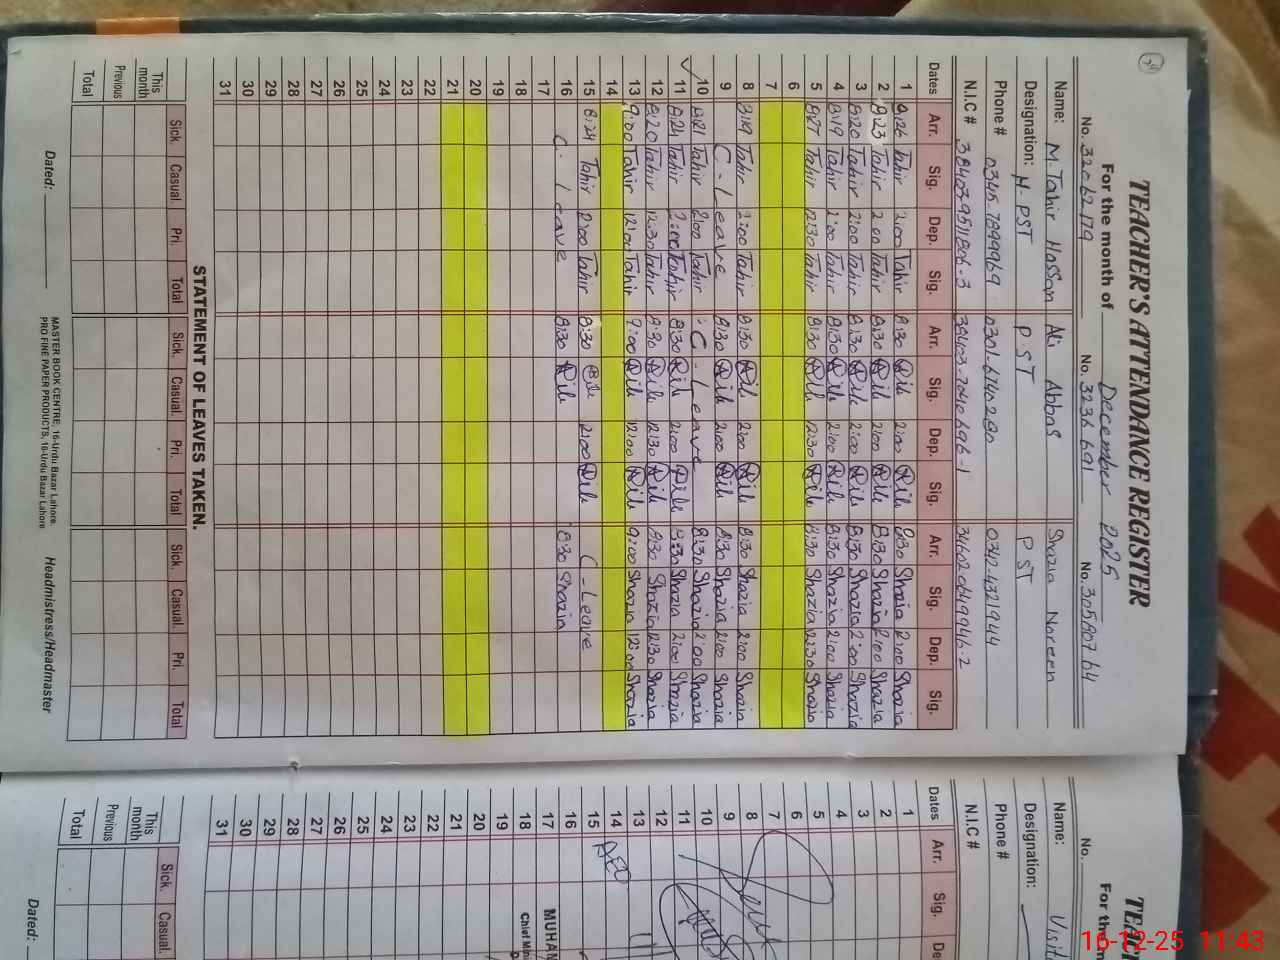 TEACHER'S ATTENDANCE REGISTER
For the month of December 2025
No. 32062179 No. 3236691 No. 30580764
Name: M. Tahir Hassan Ali Abbas Shazia Noreen
Designation: H. PST PST PST
Phone # 0345.7899969 0301-6740290 0342-4321944
N.I.C # 38403-9511806-3 38403-2040696-1 34602-0649946-2
Dates Arr. Sig. Dep. Sig. Arr. Sig. Dep. Sig. Arr. Sig. Dep. Sig.
1 8:26 Tahir 2:00 Tahir 8:30 2:00 8:30 Shazia 2:00 Shazia
2 8:23 Tahir 2:00 Tahir 8:30 2:00 8:30 Shazia 2:00 Shazia
3 8:20 Tahir 2:00 Tahir 8:30 2:00 8:30 Shazia 2:00 Shazia
4 8:19 Tahir 2:00 Tahir 8:30 2:00 8:30 Shazia 2:00 Shazia
5 8:27 Tahir 12:30 Tahir 8:30 12:30 8:30 Shazia 12:30 Shazia
6
7
8 8:19 Tahir 2:00 Tahir 8:30 2:00 8:30 Shazia 2:00 Shazia
9 C-Leave 8:30 2:00 8:30 Shazia 2:00 Shazia
10 8:21 Tahir 2:00 Tahir C-Leave 8:30 Shazia 2:00 Shazia
11 8:24 Tahir 2:00 Tahir 8:30 2:00 8:30 Shazia 2:00 Shazia
12 8:20 Tahir 12:30 Tahir 8:30 12:30 8:30 Shazia 12:30 Shazia
13 9:00 Tahir 12:00 Tahir 9:00 12:00 9:00 Shazia 12:00 Shazia
14
15 8:24 Tahir 2:00 Tahir 8:30 2:00 C-Leave
16 C. Leave 8:30 8:30 Shazia
17
18
19
20
21
22
23
24
25
26
27
28
29
30
31
STATEMENT OF LEAVES TAKEN.
Sick. Casual. Pri. Total Sick. Casual. Pri. Total Sick. Casual. Pri. Total
This month
Previous
Total
Dated:
MASTER BOOK CENTRE, 16-Urdu Bazar Lahore.
PRO FINE PAPER PRODUCTS, 16-Urdu Bazar Lahore
Headmistress/Headmaster
TEAC
For the m
No.
Name: Visit
Designation:
Phone #
N.I.C #
Dates Arr. Sig. De
1
2
3
4
5
6
7
8
9
10
11
12
13
14 AEO
15
16
17 MUHAM
18 Chief Mini
19
20
21
22
23
24
25
26
27
28
29
30
31
Sick. Casual.
This month
Previous
Total
Dated:
16-12-25 11:43